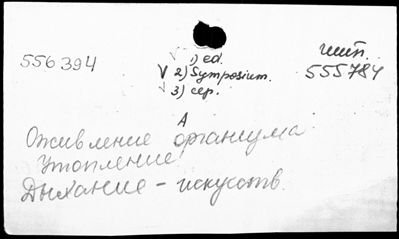 556394
√ 1) ed.
V 2) Symposium.
√ 3) сер.
шип.
555784
А
Оживление организма.
Утопление
Дыхание - искусств.